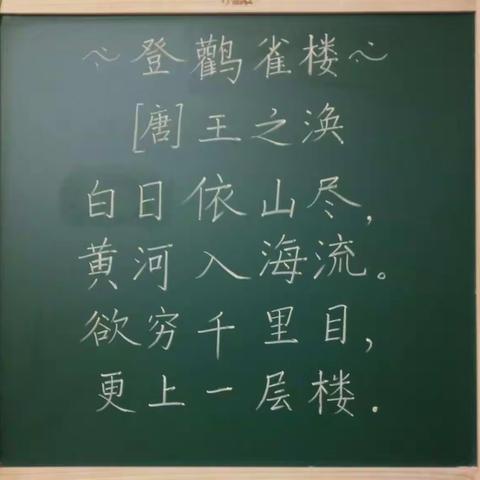 ~登鹳雀楼~
[唐]王之涣
白日依山尽,
黄河入海流。
欲穷千里目,
更上一层楼.